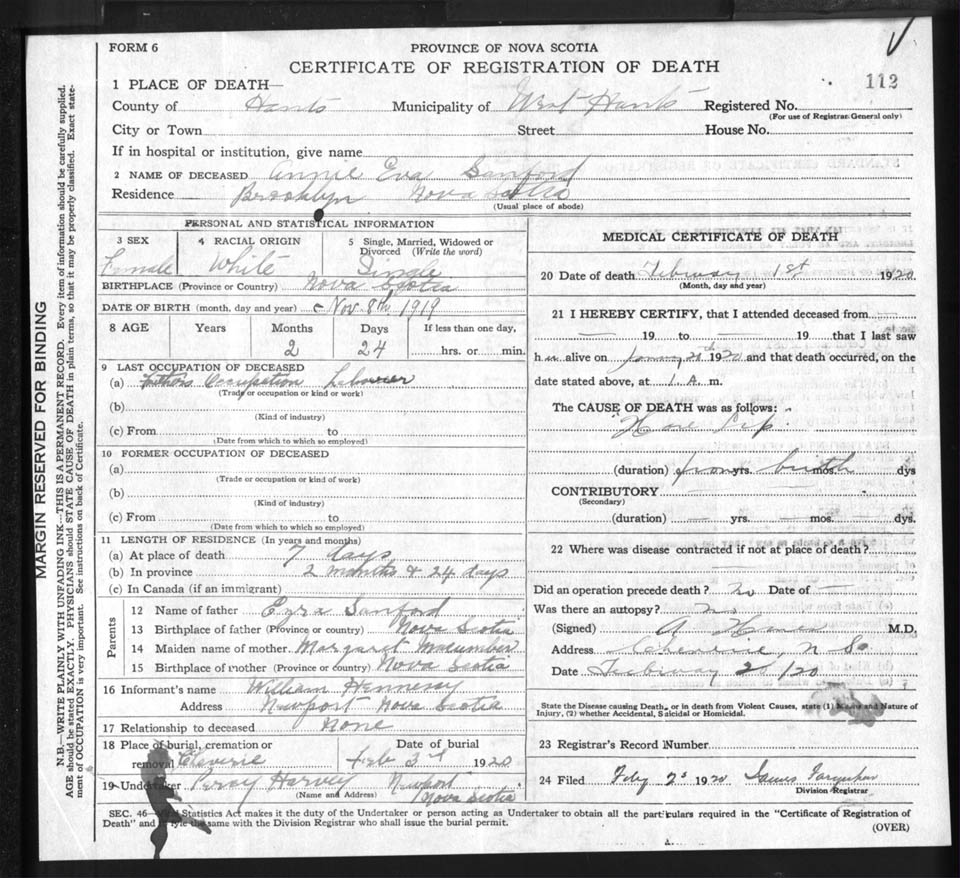 FORM 6
PROVINCE OF NOVA SCOTIA
CERTIFICATE OF REGISTRATION OF DEATH
112
1 PLACE OF DEATH—
County of Hants Municipality of West Hants Registered No.
(For use of Registrar General only)
City or Town Street House No.
If in hospital or institution, give name
2 NAME OF DECEASED Annie Eva Sanford
Residence Brooklyn Nova Scotia
(Usual place of abode)
PERSONAL AND STATISTICAL INFORMATION
3 SEX Female
4 RACIAL ORIGIN White
5 Single, Married, Widowed or Divorced (Write the word) Single
BIRTHPLACE (Province or Country) Nova Scotia
DATE OF BIRTH (month, day and year) Nov. 8th 1919
8 AGE Years Months Days If less than one day,
2 24 hrs. or min.
9 LAST OCCUPATION OF DECEASED
(a) Fathers Occupation Labourer
(Trade or occupation or kind or work)
(b)
(Kind of industry)
(c) From to
(Date from which to which so employed)
10 FORMER OCCUPATION OF DECEASED
(a)
(Trade or occupation or kind of work)
(b)
(Kind of industry)
(c) From to
(Date from which to which so employed)
11 LENGTH OF RESIDENCE (In years and months)
(a) At place of death 7 days
(b) In province 2 months & 24 days
(c) In Canada (if an immigrant)
Parents
12 Name of father Ezra Sanford
13 Birthplace of father (Province or country) Nova Scotia
14 Maiden name of mother Margaret Macumber
15 Birthplace of mother (Province or country) Nova Scotia
16 Informant's name William Hennessy
Address Newport Nova Scotia
17 Relationship to deceased None
18 Place of burial, cremation or removal Cheverie
Date of burial Feb 3rd 1920
19 Undertaker Percy Harvey Newport
(Name and Address) Nova Scotia
MEDICAL CERTIFICATE OF DEATH
20 Date of death February 1st 1920
(Month, day and year)
21 I HEREBY CERTIFY, that I attended deceased from
— 19 to — 19 that I last saw
h alive on January 1920 and that death occurred, on the
date stated above, at 1 A. m.
The CAUSE OF DEATH was as follows:
"Hare Lip"
(duration) from yrs. birth mos. dys
CONTRIBUTORY —
(Secondary)
(duration) — yrs. — mos. — dys.
22 Where was disease contracted if not at place of death?
Did an operation precede death? No Date of —
Was there an autopsy? No
(Signed) A M.D.
Address Cheverie, N So
Date February 2/20
State the Disease causing Death, or in death from Violent Causes, state (1) Means and Nature of
Injury, (2) whether Accidental, Suicidal or Homicidal.
23 Registrar's Record Number
24 Filed 1920 James Farquhar
Division Registrar
SEC. 46— Statistics Act makes it the duty of the Undertaker or person acting as Undertaker to obtain all the particulars required in the "Certificate of Registration of
Death" and the same with the Division Registrar who shall issue the burial permit.
(OVER)
MARGIN RESERVED FOR BINDING
N.B.—WRITE PLAINLY WITH UNFADING INK—THIS IS A PERMANENT RECORD. Every item of information should be carefully supplied.
AGE should be stated EXACTLY. PHYSICIANS should STATE CAUSE OF DEATH in plain terms, so that it may be properly classified. Exact state-
ment of OCCUPATION is very important. See instructions on back of Certificate.